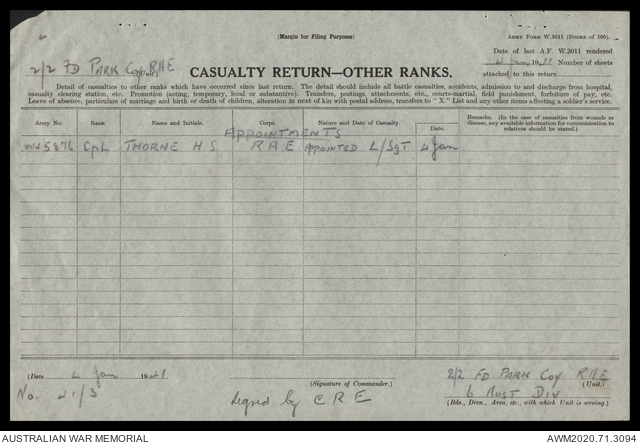 (Margin for Filing Purposes)
ARMY FORM W.3011 (BOOKS OF 100).
Date of last A.F. W.3011 rendered
2/2 FD PARK Coy RAE
(Unit)
4 Jan 1941 Number of sheets
CASUALTY RETURN—OTHER RANKS.
attached to this return
Detail of casualties to other ranks which have occurred since last return. The detail should include all battle casualties, accidents, admission to and discharge from hospital,
casualty clearing station, etc. Promotion (acting, temporary, local or substantive). Transfers, postings, attachments, etc., courts-martial, field punishment, forfeiture of pay, etc.
Leave of absence, particulars of marriage and birth or death of children, alteration in next of kin with postal address, transfers to "X" List and any other items affecting a soldier's service.
Army No. Rank. Name and Initials. Corps. Nature and Date of Casualty. Date. Remarks. (In the case of casualties from wounds or
disease, any available information for communication to
relatives should be stated.)
APPOINTMENTS
WX5876 Cpl THORNE H S RAE APPOINTED L/Sgt 4 Jan
(Date 4 Jan 1941
(Signature of Commander.)
2/2 FD PARK Coy RAE
(Unit.)
No. 41/3
Signed by C R E
6 Aust Div
(Bde., Divn., Area, etc., with which Unit is serving.)
AUSTRALIAN WAR MEMORIAL
AWM2020.71.3094